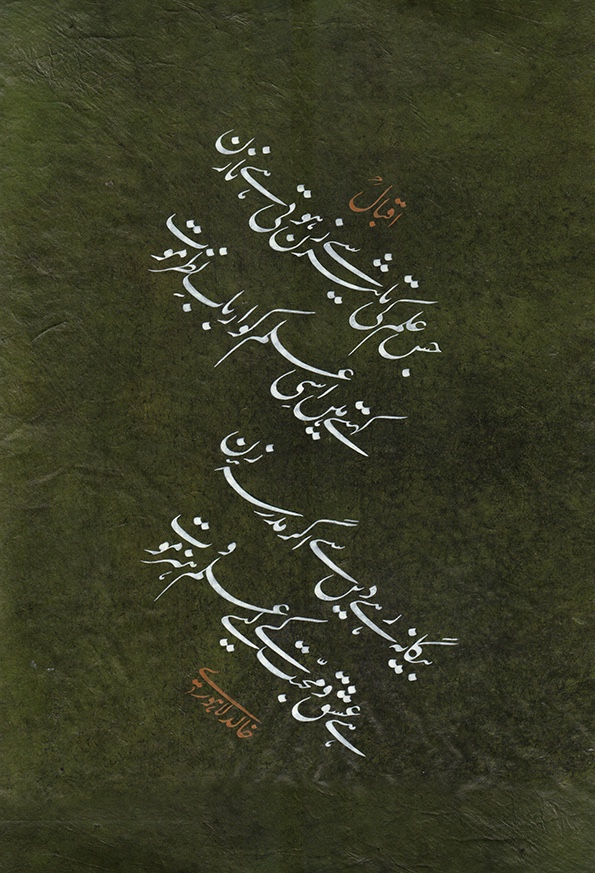 اقبالؒ
جس علم کی تاثیر سے زن ہوتی ہے نازن
کہتے ہیں اسی علم کو اربابِ نظر موت
بیگانہ رہے دیں سے اگر مدرسۂ زن
ہے عشق و محبت کے لیے علم و ہنر موت
خالد لاہوری